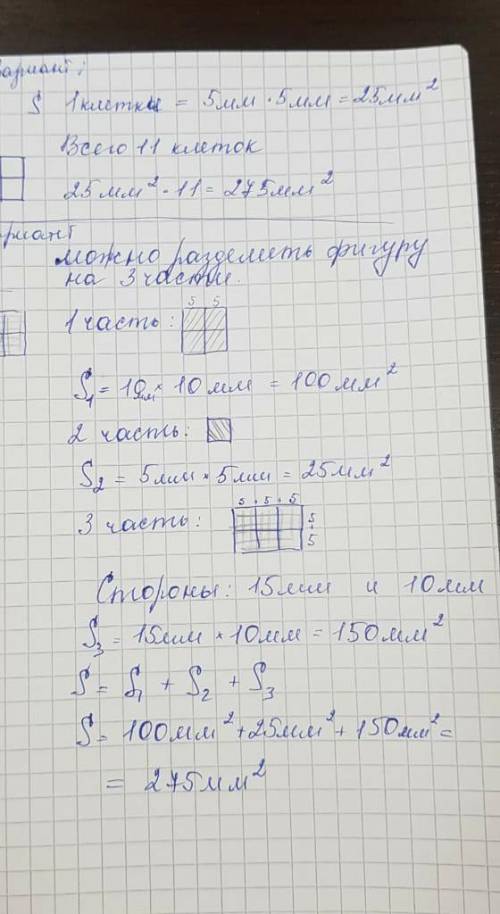 вариант:
S 1 клетки = 5мм · 5мм = 25мм²
Всего 11 клеток
25 мм² · 11 = 275мм²
риант
можно разделить фигуру
на 3 части.
5 5
1 часть:
S₁ = 10мм × 10 мм = 100 мм²
2 часть:
S₂ = 5мм × 5мм = 25мм²
5 + 5 + 5
3 часть:
5
+
5
Стороны: 15мм и 10мм
S₃ = 15мм × 10мм = 150мм²
S = S₁ + S₂ + S₃
S = 100мм² + 25мм² + 150мм² =
= 275мм²